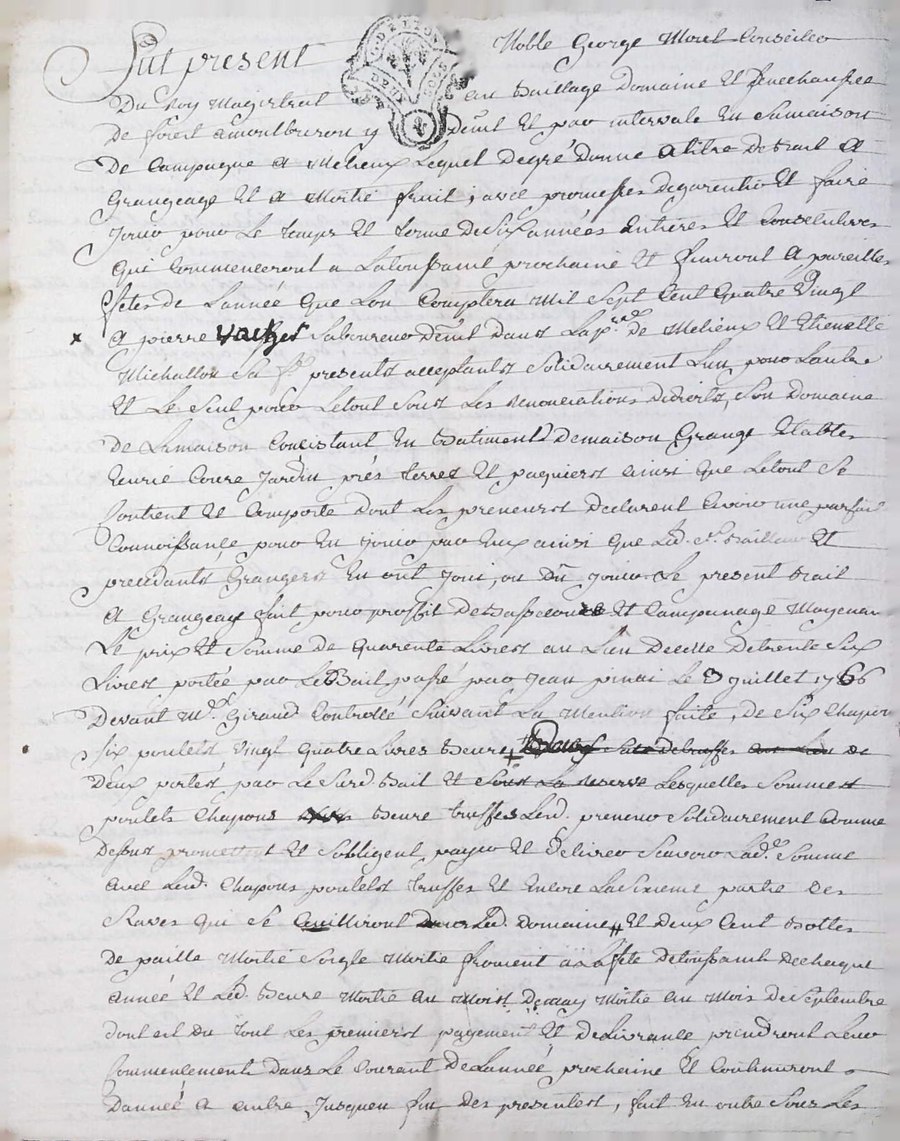 Fut present Noble George Morel Conseiller
Du Roy Magistrat au Baillage Domaine Et Senechaussée
De forest a montbrizon y demt Et par intervale En sa maison
De Campagne a Melieux Lequel De gré Donne a titre de Bail a
Grangeage Et a Moitié fruit, avec promesses De garentie Et faire
Jouir pour Le temps Et terme De Six années Entieres Et Consecutives
qui Commenceront a La toussaint prochaine Et finiront a pareilles
festes de L'année que Lon Comptera Mil Sept Cent quatre Vingt
x a pierre Laboureur demt Dans La psse de Melieux Et Etienette
Michallon Sa presents acceptants Solidairement L'un pour L'autre
Et Le Seul pour Le tout Sous Les renonciations De droits, Son Domaine
de La maison Consistant En Batiments De maison Grange Etables
Ecurie Coure Jardin prés terres Et paquiers ainsi que Le tout Se
Contient Et Comporte Dont Les preneurs declarent avoir une parfaite
Connoissance pour En Jouir par Eux ainsi que Led. Sr Bailleur Et
precedants Grangers En ont Joui, ou Dû Jouir. Le present Bail
a Grangeage fait pour proffit De Basse cour Et Campanage Moyenant
Le prix Et Somme de quarente Livres au Lieu De celle De trente Six
Livres portée par Le Bail passé par Jean Le 3 Juillet 1766
Devant Me Giraud Controllé Suivant La Mention faite, de Six Chapons
Six poulets Vingt quatre Livres Beure de
Deux portés par Le Surd. Bail Et Sous La reserve Lesquelles Sommes
poulets Chapons Beure truffes Led. preneur Solidairement Comme
Dessus promettent Et S'obligent payer Et Delivrer Scavoir Lad.e Somme
avec Lesd. Chapons poulets truffes Et Encore La Sixieme partie des
Raves qui Se Cueilliront Led. Domaine Et Deux Cent Bottes
De paille Moitié Soigle Moitié froment a La fete De toussaints De chaque
année Et Led. Beure Moitié au Mois De may Moitié au Mois De Septembre
dont Et Du tout Les premiers payement Et De Livrance prendront Leur
Commencement Dans Le Courant De L'année prochaine Et Continuront
D'année a autre Jusqu'en fin Des presentes, fait En outre Sous Les